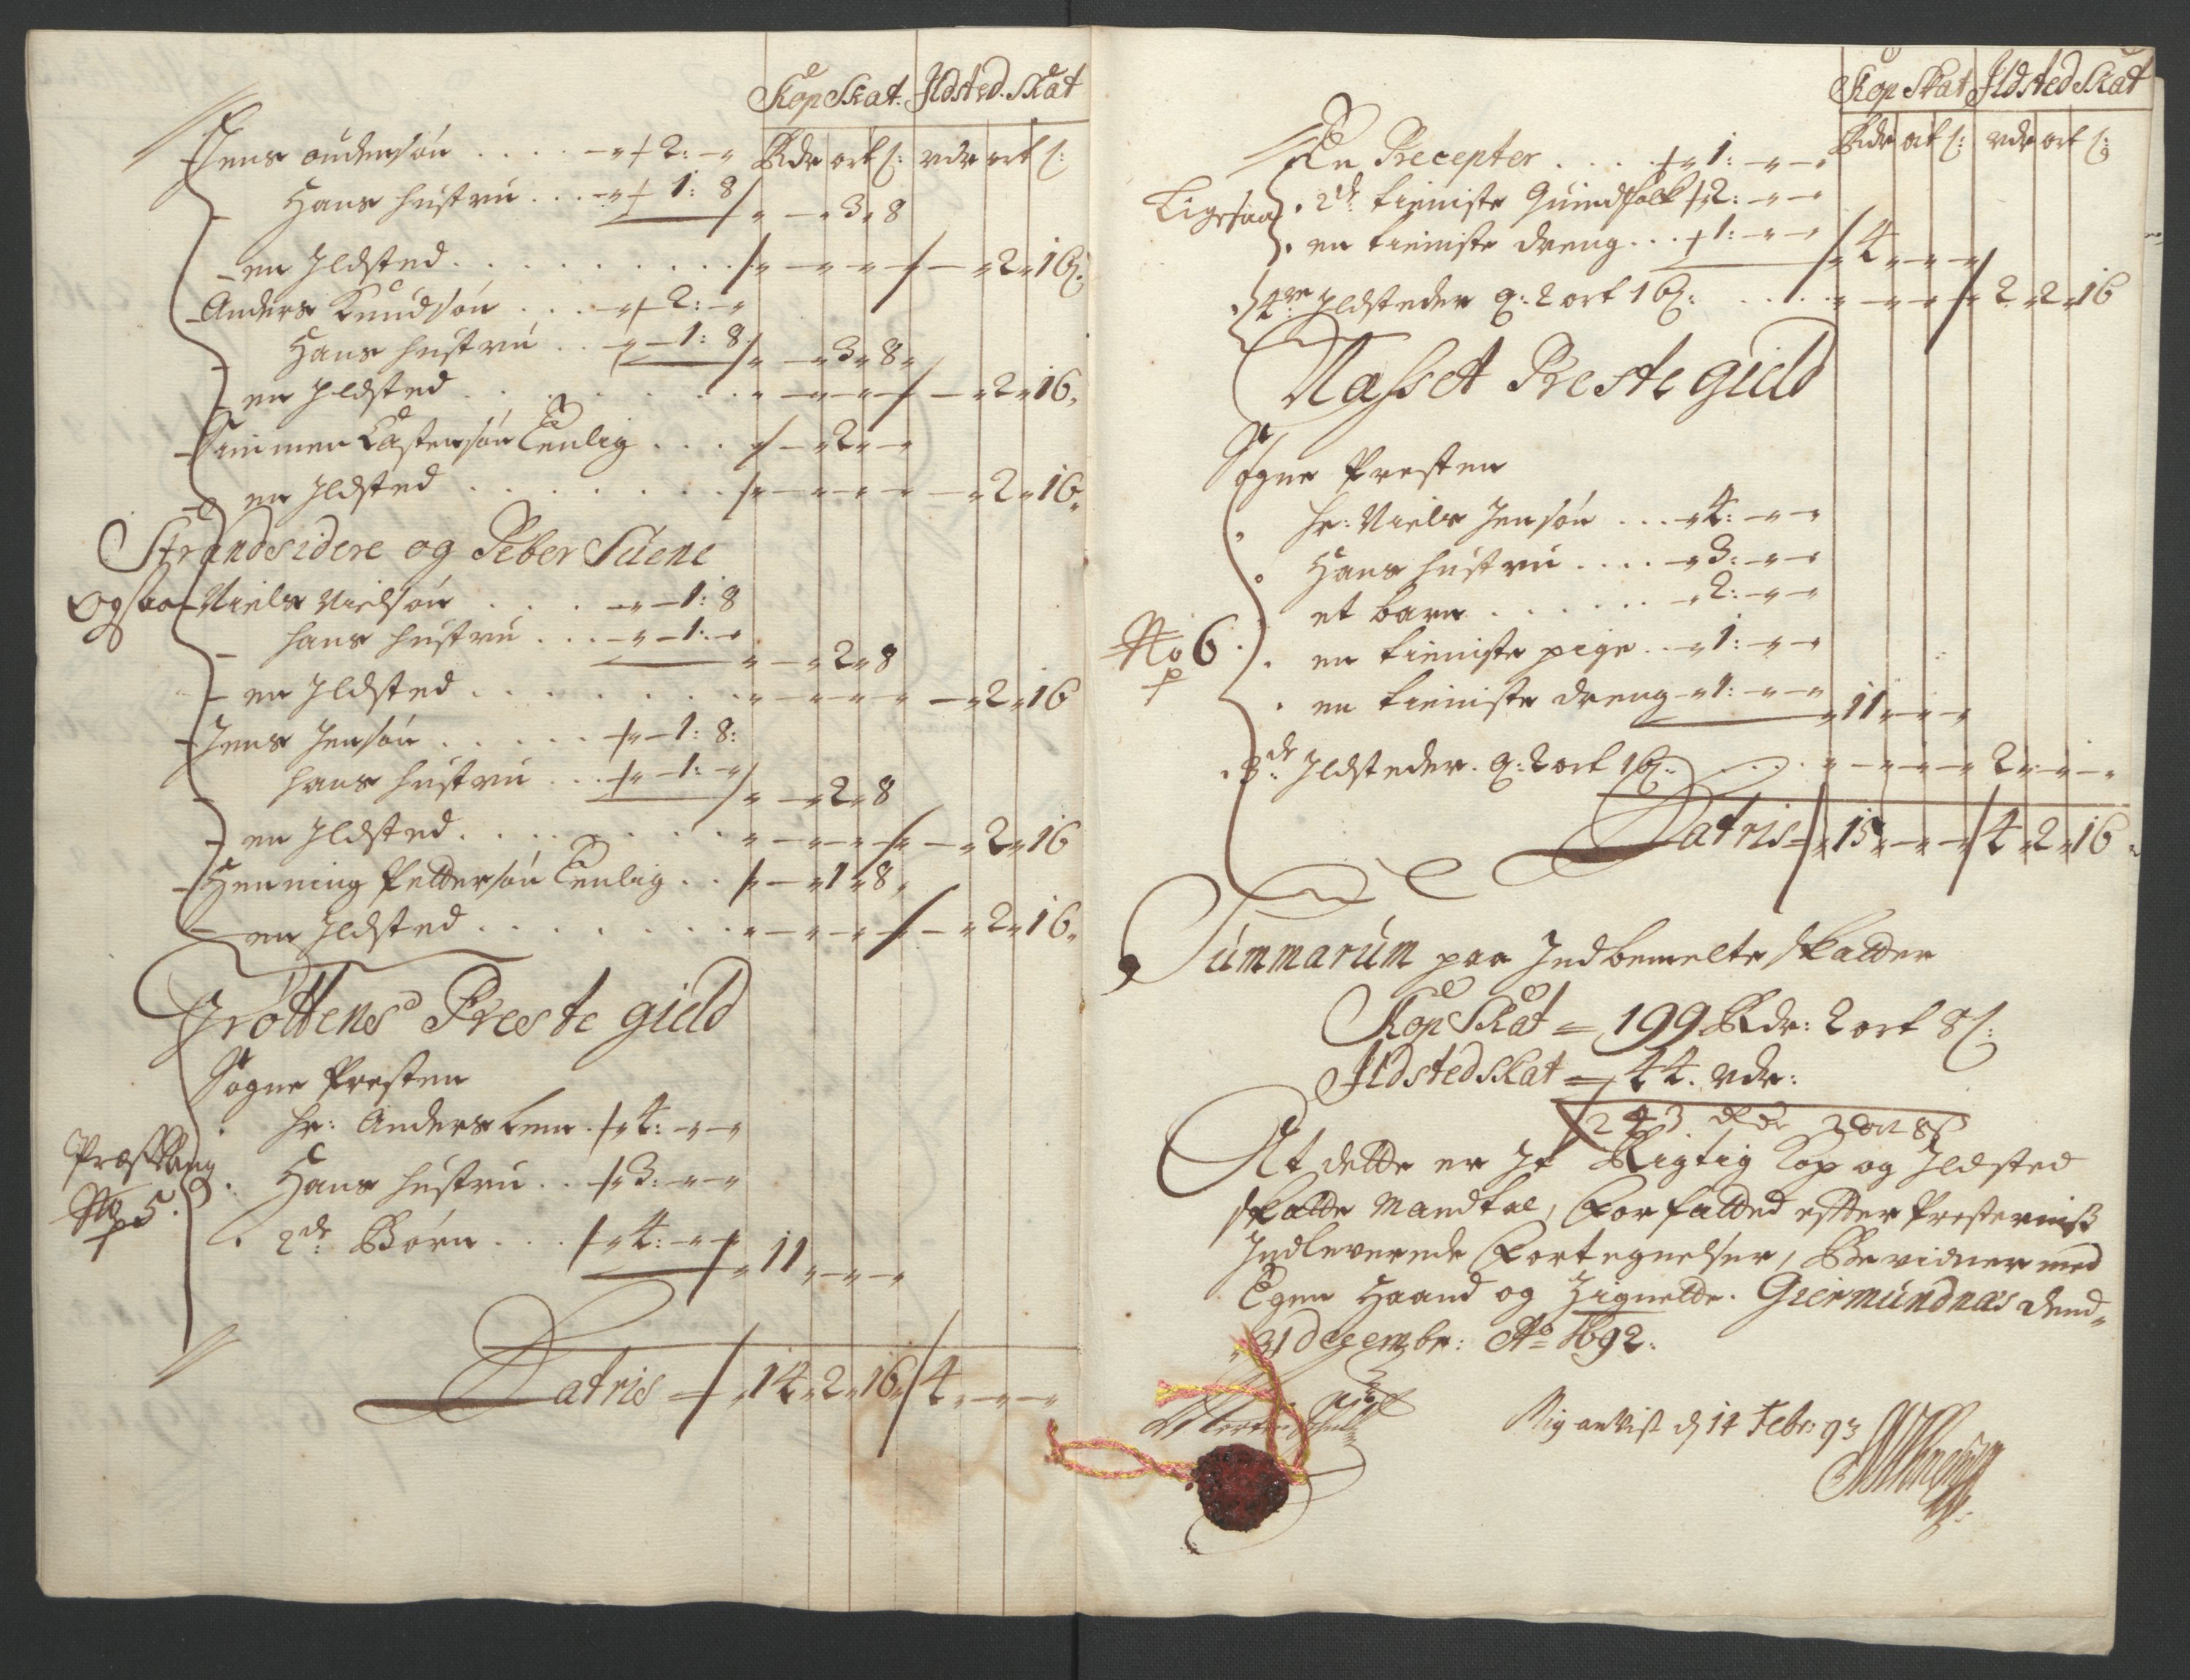 Kop Skat. Ildsted. Skat
Rdr ort ſ: rdr ort ſ:
Jens andersøn . . . . 2: -
Hans hustru . . . 1: 8 - 3 8
en Ildsted . . . . . . . . . 2 16ſ:
Anders Knudsøn . . . 2: -
Hans hustru . . 1: 8 - 3 8
en Ildsted . . . . . . . 2 16
Simmen Castensøn Eenlig . . . - 2 -
en Ildsted . . . . . . . 2 16
Strandsidere og Peber Suene
Ogsaa Niels Nielsøn . . . . 1: 8
hans hustru . . . 1: - - 2 8
en Ildsted . . . . . . . - 2 16
Jens Jensøn . . . . . 1: 8:
hans hustru . . . 1: - - 2 8
en Ildsted . . . . . . . - 2 16
Henning Pettersøn Eenlig . . - 1 8
en Ildsted . . . . . . . . - 2 16
Grøttens Preste gield
Sogne Presten
hr: Anders Lem . 4: - -
Hans hustru . . 3: - -
No 5.
2de: Børn . . . 4: - - 11 - -
Latris = 14 2 16 4 - -
Kop Skat Ildsted Skat
Rdr ort ſ: rdr ort ſ:
En Precepter . . . . 1: - -
Ligesaa 2de: tieniste Quindfolk 2: - -
en tieniste dreng . . . 1: - - 4 - -
4re: Ildsteder a: 2 ort 16ſ: . . . . 2 2 16
Nasset Preste gield
Sogne Presten
hr: Niels Jensøn . . . 4: - -
Hans hustru . . . . 3: - -
et barn . . . . . . 2: - -
No 6. en tieniste pige . . 1: - -
en tieniste dreng 1: - - 11 - -
3de: Ildsteder. a: 2 ort 16ſ: . . . 2 - -
Latris = 15 - - 4 2 16
Summarum paa Indbemelte skatter
Kop Skat = 199 Rdr: 2 ort 8ſ:
Ildsted Skat = 44. rdr:
243 rdr 2 ort 8ſ
At dette er It Rigtig Kop og Ildsted
skatte Mandtal, Forfatted efter Presternis
Indleverede Fortegnelser, Bevidner med
Egen Haand og Zignette. Giermundnæs dend
31 dezembr: Ao 1692.
Mig anVist d 14 Febr: 93